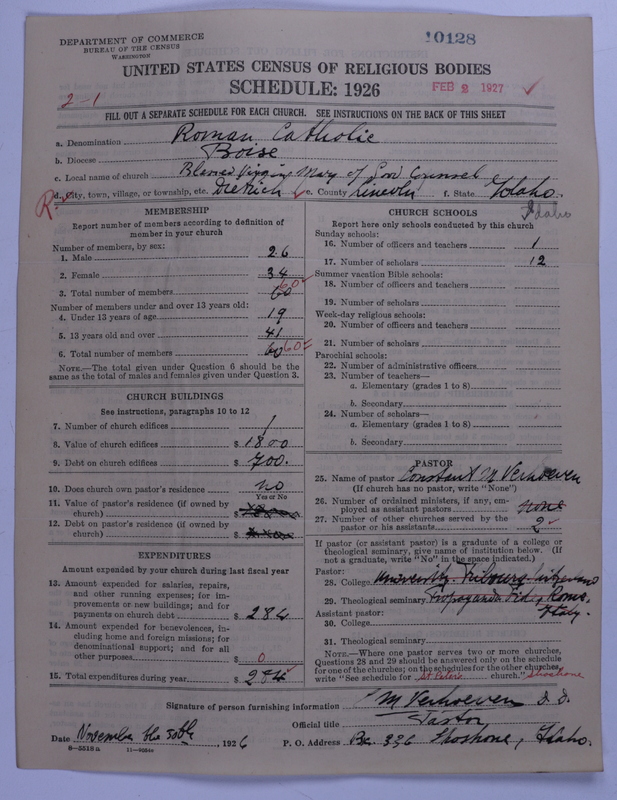 DEPARTMENT OF COMMERCE
BUREAU OF THE CENSUS
WASHINGTON
10128
UNITED STATES CENSUS OF RELIGIOUS BODIES
SCHEDULE: 1926
FEB 2 1927
2-1
FILL OUT A SEPARATE SCHEDULE FOR EACH CHURCH. SEE INSTRUCTIONS ON THE BACK OF THIS SHEET
a. Denomination Roman Catholic
b. Diocese Boise
c. Local name of church Blessed Virgin Mary of Good Counsel
d. City, town, village, or township, etc. Dietrich e. County Lincoln f. State Idaho.
R
Idaho
MEMBERSHIP
Report number of members according to definition of
member in your church
Number of members, by sex:
1. Male 26
2. Female 34
3. Total number of members 60 60
Number of members under and over 13 years old:
4. Under 13 years of age 19
5. 13 years old and over 41
6. Total number of members 60 60
NOTE.—The total given under Question 6 should be
same as the total of males and females given under Question 3.
CHURCH BUILDINGS
See instructions, paragraphs 10 to 12
7. Number of church edifices 1
8. Value of church edifices $ 1800
9. Debt on church edifices $ 700.
10. Does church own pastor's residence no
Yes or No
11. Value of pastor's residence (if owned by
church) $
12. Debt on pastor's residence (if owned by
church) $
EXPENDITURES
Amount expended by your church during last fiscal year
13. Amount expended for salaries, repairs,
and other running expenses; for im-
provements or new buildings; and for
payments on church debt $ 284
14. Amount expended for benevolences, in-
cluding home and foreign missions; for
denominational support; and for all
other purposes $ 0
15. Total expenditures during year $ 284
CHURCH SCHOOLS
Report here only schools conducted by this church
Sunday schools:
16. Number of officers and teachers 1
17. Number of scholars 12
Summer vacation Bible schools:
18. Number of officers and teachers
19. Number of scholars
Week-day religious schools:
20. Number of officers and teachers
21. Number of scholars
Parochial schools:
22. Number of administrative officers
23. Number of teachers—
a. Elementary (grades 1 to 8)
b. Secondary
24. Number of scholars—
a. Elementary (grades 1 to 8)
b. Secondary
PASTOR
25. Name of pastor Constant M Verhoeven
(If church has no pastor, write "None")
26. Number of ordained ministers, if any, em-
ployed as assistant pastors none
27. Number of other churches served by the
pastor or his assistants 2
If pastor (or assistant pastor) is a graduate of a college or
theological seminary, give name of institution below. (If
not a graduate, write "No" in the space indicated.)
Pastor:
28. College University Fribourg Switzerland
29. Theological seminary Propaganda Fide, Rome.
Italy.
Assistant pastor:
30. College
31. Theological seminary
NOTE.—Where one pastor serves two or more churches,
Questions 28 and 29 should be answered only on the schedule
for one of the churches; on the schedules for the other churches,
write "See schedule for St Peter's church." Shoshone
Signature of person furnishing information M Verhoeven
Official title Pastor
Date November the 30th, 1926 P. O. Address Bx. 336 Shoshone, Idaho.
8—5518a 11—9584